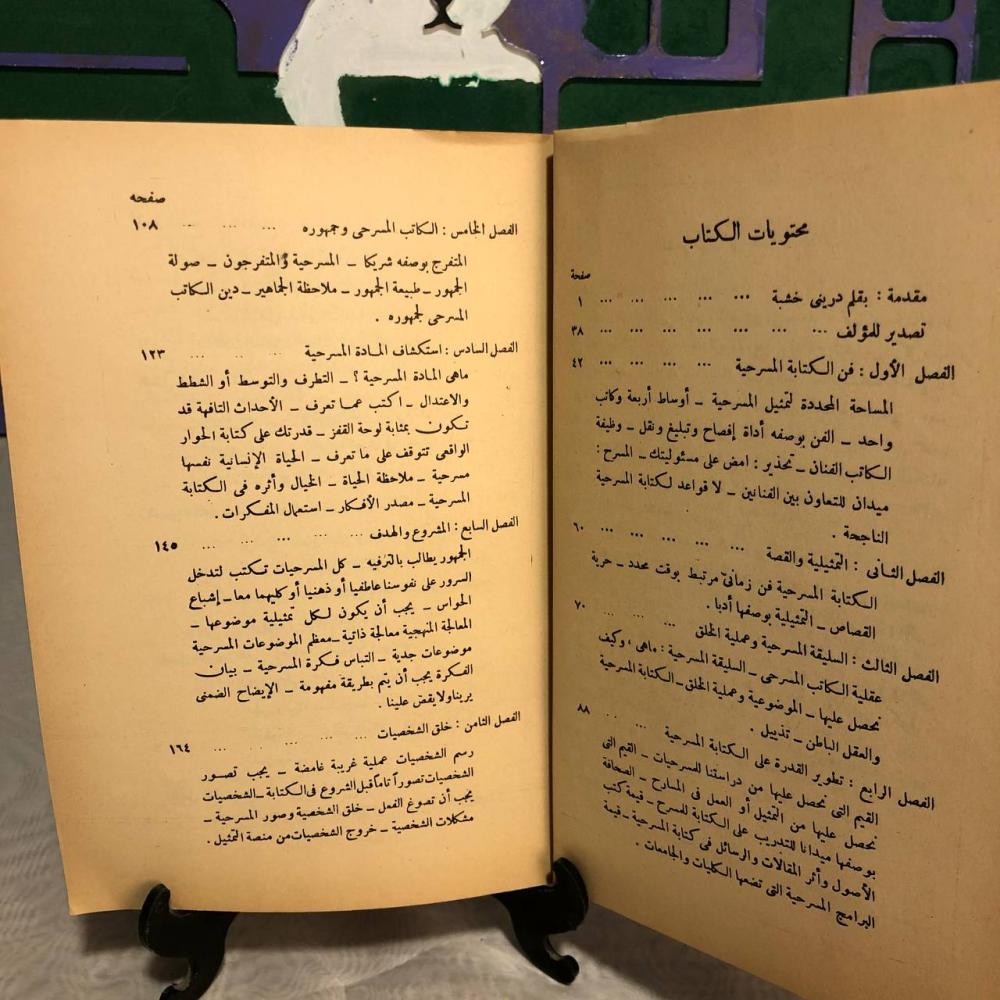 محتويات الكتاب
صفحة
مقدمة : بقلم دريني خشبة ... ... ... ... ... ١
تصدير للمؤلف ... ... ... ... ... ... ... ٣٨
الفصل الأول : فن الكتابة المسرحية ... ... ... ... ٤٢
المساحة المحددة لتمثيل المسرحية ــ أوساط أربعة وكاتب
واحد ــ الفن بوصفه أداة إفصاح وتبليغ ونقل ــ وظيفة
الكاتب الفنان ــ تحذير : امض على مسئوليتك ــ المسرح :
ميدان للتعاون بين الفنانين ــ لا قواعد لكتابة المسرحية
الناجحة .
الفصل الثانى : التمثيلية والقصة ... ... ... ... ... ٦٠
الكتابة المسرحية فن زمانىّ مرتبط بوقت محدد ــ حرية
القصاص ــ التمثيلية بوصفها أدبا .
الفصل الثالث : السليقة المسرحية وعملية الخلق ... ... ٧٠
عقلية الكاتب المسرحى ــ السليقة المسرحية : ماهى ، وكيف
نحصل عليها ــ الموضوعية وعملية الخلق ــ الكتابة المسرحية
والعقل الباطن ــ تذييل .
الفصل الرابع : تطوير القدرة على الكتابة المسرحية ... ... ٨٨
القيم التى نحصل عليها من دراستنا للمسرحيات ــ القيم التى
نحصل عليها من التمثيل أو العمل فى المسارح ــ الصحافة
بوصفها ميدانا للتدريب على الكتابة للمسرح ــ قيمة كتب
الأصول وأثر المقالات والرسائل فى كتابة المسرحية ــ قيمة
البرامج المسرحية التى تضعها الكليات والجامعات .
صفحه
الفصل الخامس : الكاتب المسرحى وجمهوره ... ... ... ١٠٨
المتفرج بوصفه شريكا ــ المسرحية والمتفرجون ــ صولة
الجهور ــ طبيعة الجمهور ــ ملاحظة الجماهير ــ دين الكاتب
المسرحى لجمهوره .
الفصل السادس : استكشاف المادة المسرحية ... ... ... ١٢٣
ماهى المادة المسرحية ؟ ــ التطرف والتوسط أو الشطط
والاعتدال ــ اكتب عما تعرف ــ الأحداث التافهة قد
تكون بمثابة لوحة القفز ــ قدرتك على كتابة الحوار
الواقعى تتوقف على ما تعرف ــ الحياة الإنسانية نفسها
مسرحية ــ ملاحظة الحياة ــ الخيال وأثره فى الكتابة
المسرحية ــ مصدر الأفكار ــ استعمال المفكرات .
الفصل السابع : المشروع والهدف ... ... ... ... ... ١٤٥
الجمهور يطالب بالترفيه ــ كل المسرحيات تكتب لتدخل
السرور على نفوسنا عاطفيا أو ذهنيا أو كليهما معا ــ إشباع
الحواس ــ يجب أن يكون لكل تمثيلية موضوعها ــ
المعالجة المنهجية معالجة ذاتية ــ معظم الموضوعات المسرحية
موضوعات جدية ــ التباس فكرة المسرحية ــ بيان
الفكرة يجب أن يتم بطريقة مفهومة ــ الإيضاح الضمنى
يريناولايقض علينا .
الفصل الثامن : خلق الشخصيات ... ... ... ... ... ١٦٤
رسم الشخصيات عملية غريبة غامضة ــ يجب تصور
الشخصيات تصوراً تاماً قبل الشروع فى الكتابة ــ الشخصيات
يجب أن تصوغ الفعل ــ خلق الشخصية وصور المسرحية ــ
مشكلات الشخصية ــ خروج الشخصيات من منصة التمثيل .